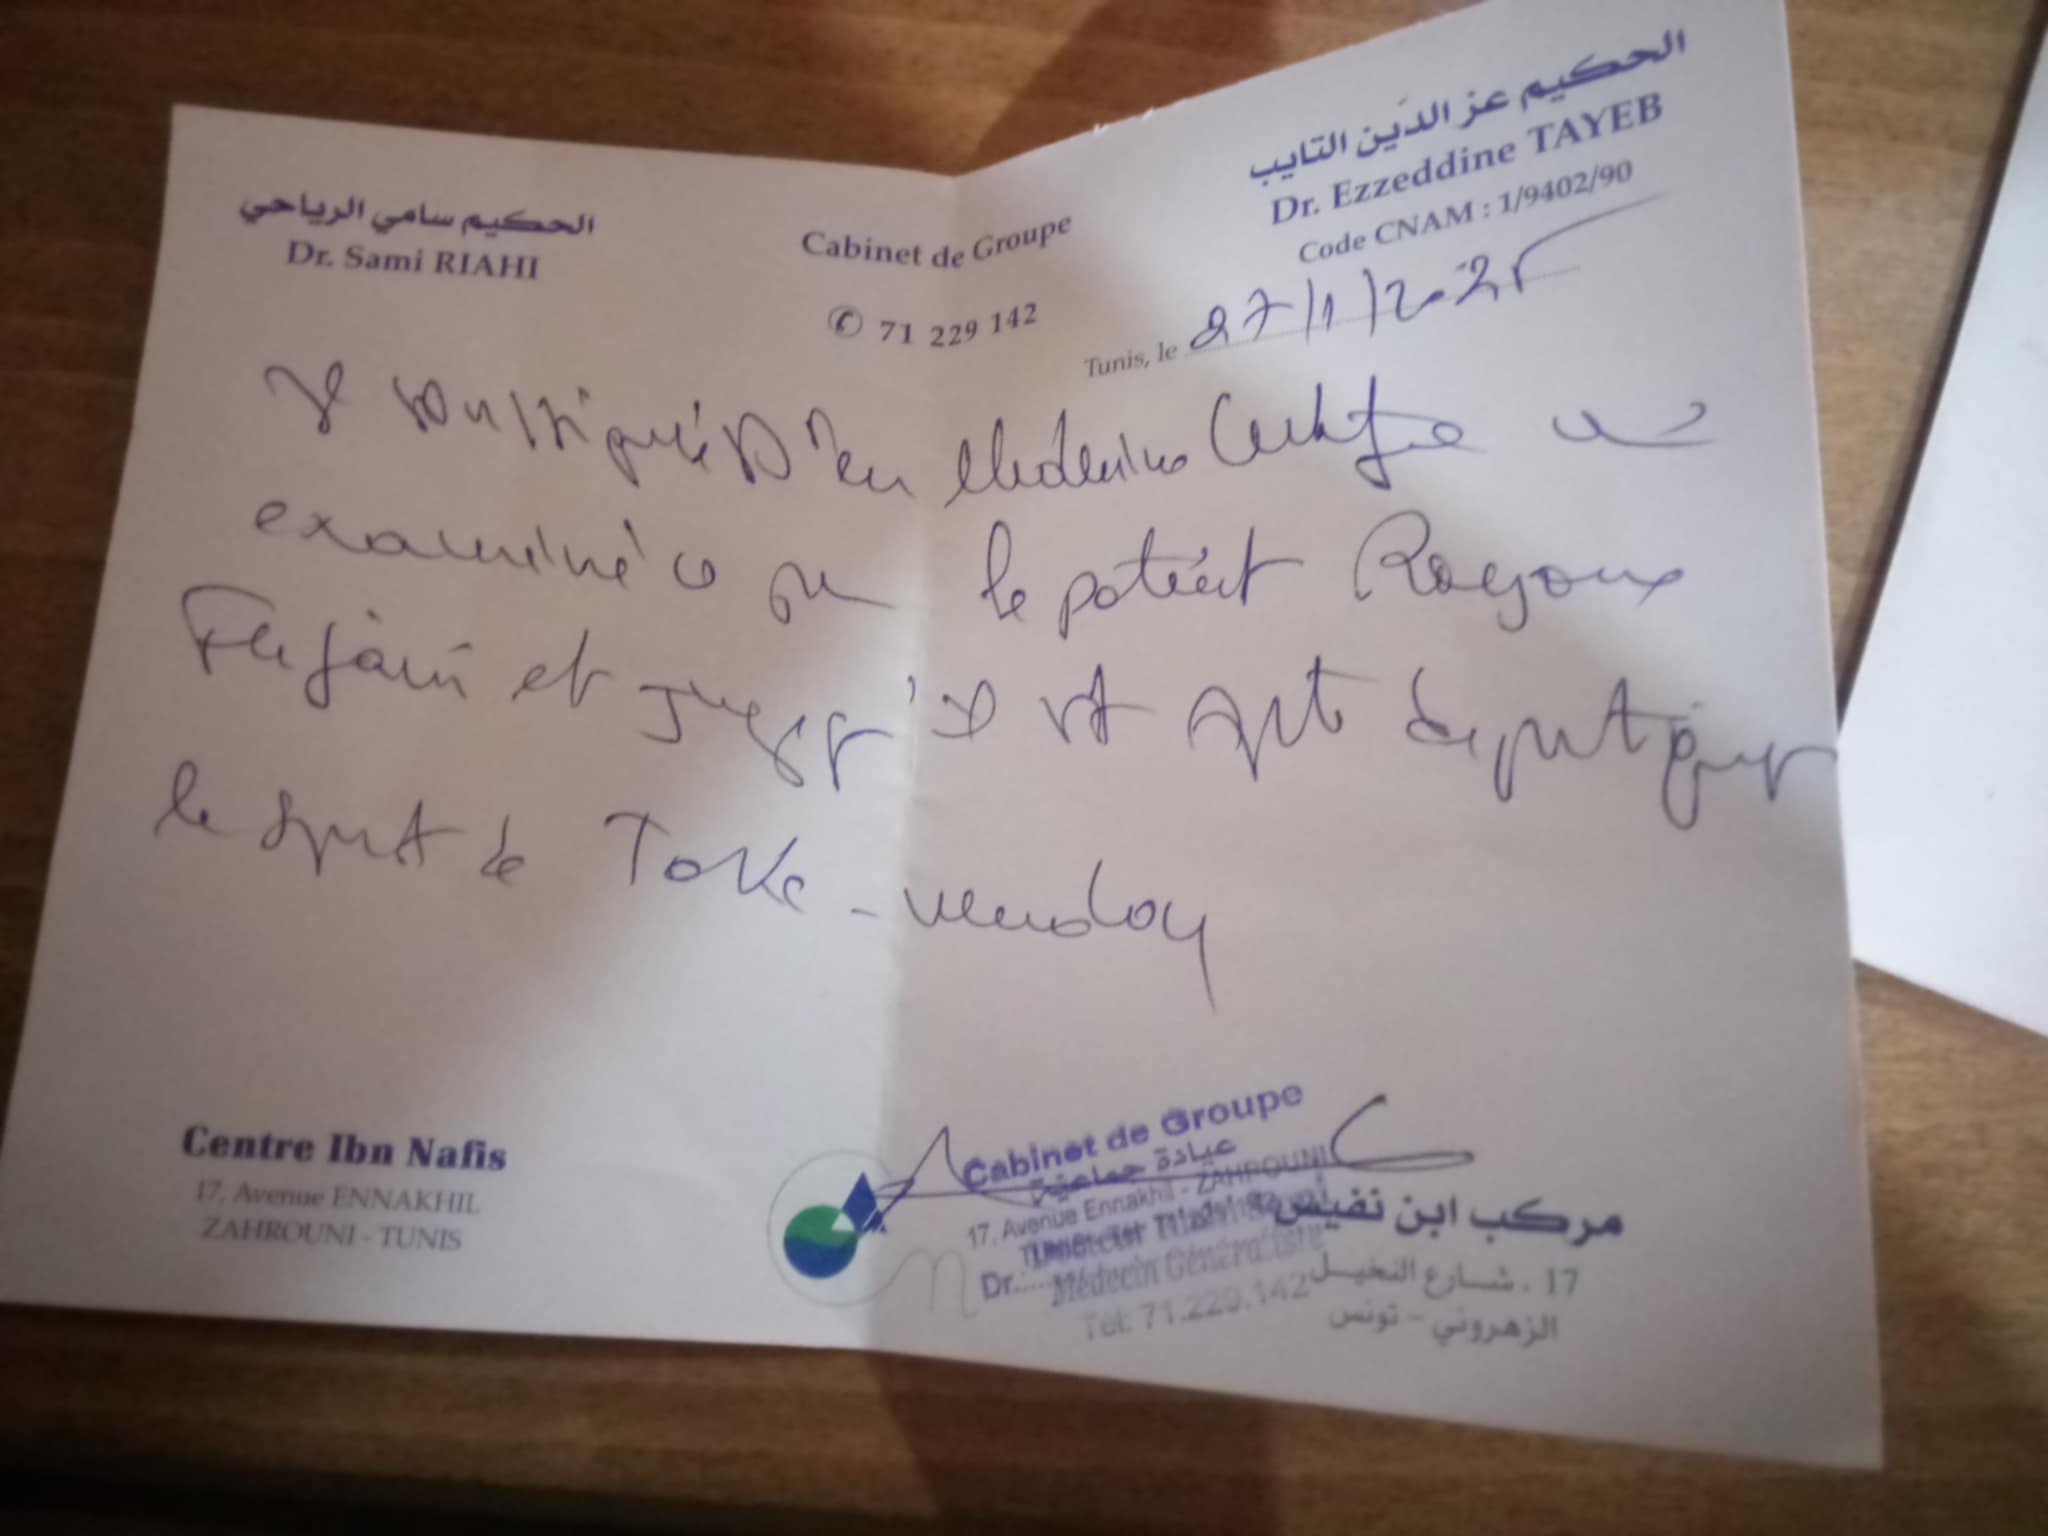 الحكيم سامي الرياحي
Dr. Sami RIAHI
Cabinet de Groupe
✆ 71 229 142
الحكيم عز الدين التايب
Dr. Ezzeddine TAYEB
Code CNAM : 1/9402/90
Tunis, le 27/1/2025
Je soussigné Dr en Medecine Certifie
examiné ce jour le patient
Ferjani et juge qu'il est apte de pratiquer
le sport de
Centre Ibn Nafis
17, Avenue ENNAKHIL
ZAHROUNI - TUNIS
Cabinet de Groupe
عيادة جماعية
17, Avenue Ennakhil - ZAHROUNI
Dr.:
Médecin Généraliste
Tél: 71.229.142
مركب ابن نفيس
17 ، شارع النخيل
الزهروني - تونس